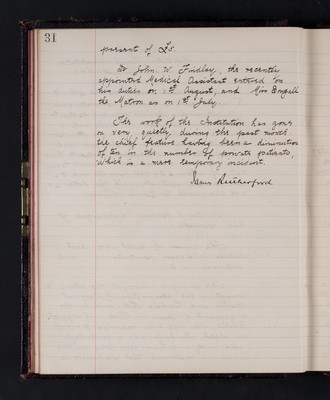 31
present of £5.
Dr John W. Findlay, the recently
appointed Medical Assistant entered on
his duties on 1st August, and Miss
the Matron as on 1st July.
The work of the Institution has gone
on very quietly during the past month
the chief feature having been a diminution
of ten in the number of private patients
which is a mere temporary incident.
James Rutherford